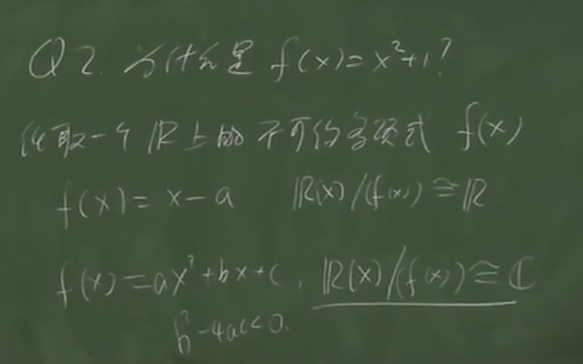 Q2. 为什么是 f(x)=x²+1?
任取一个 ℝ上的 不可约多项式 f(x)
f(x)=x-a ℝ(x)/(f(x))≅ℝ
f(x)=ax²+bx+c, ℝ(x)/(f(x))≅ℂ
b²-4ac<0.